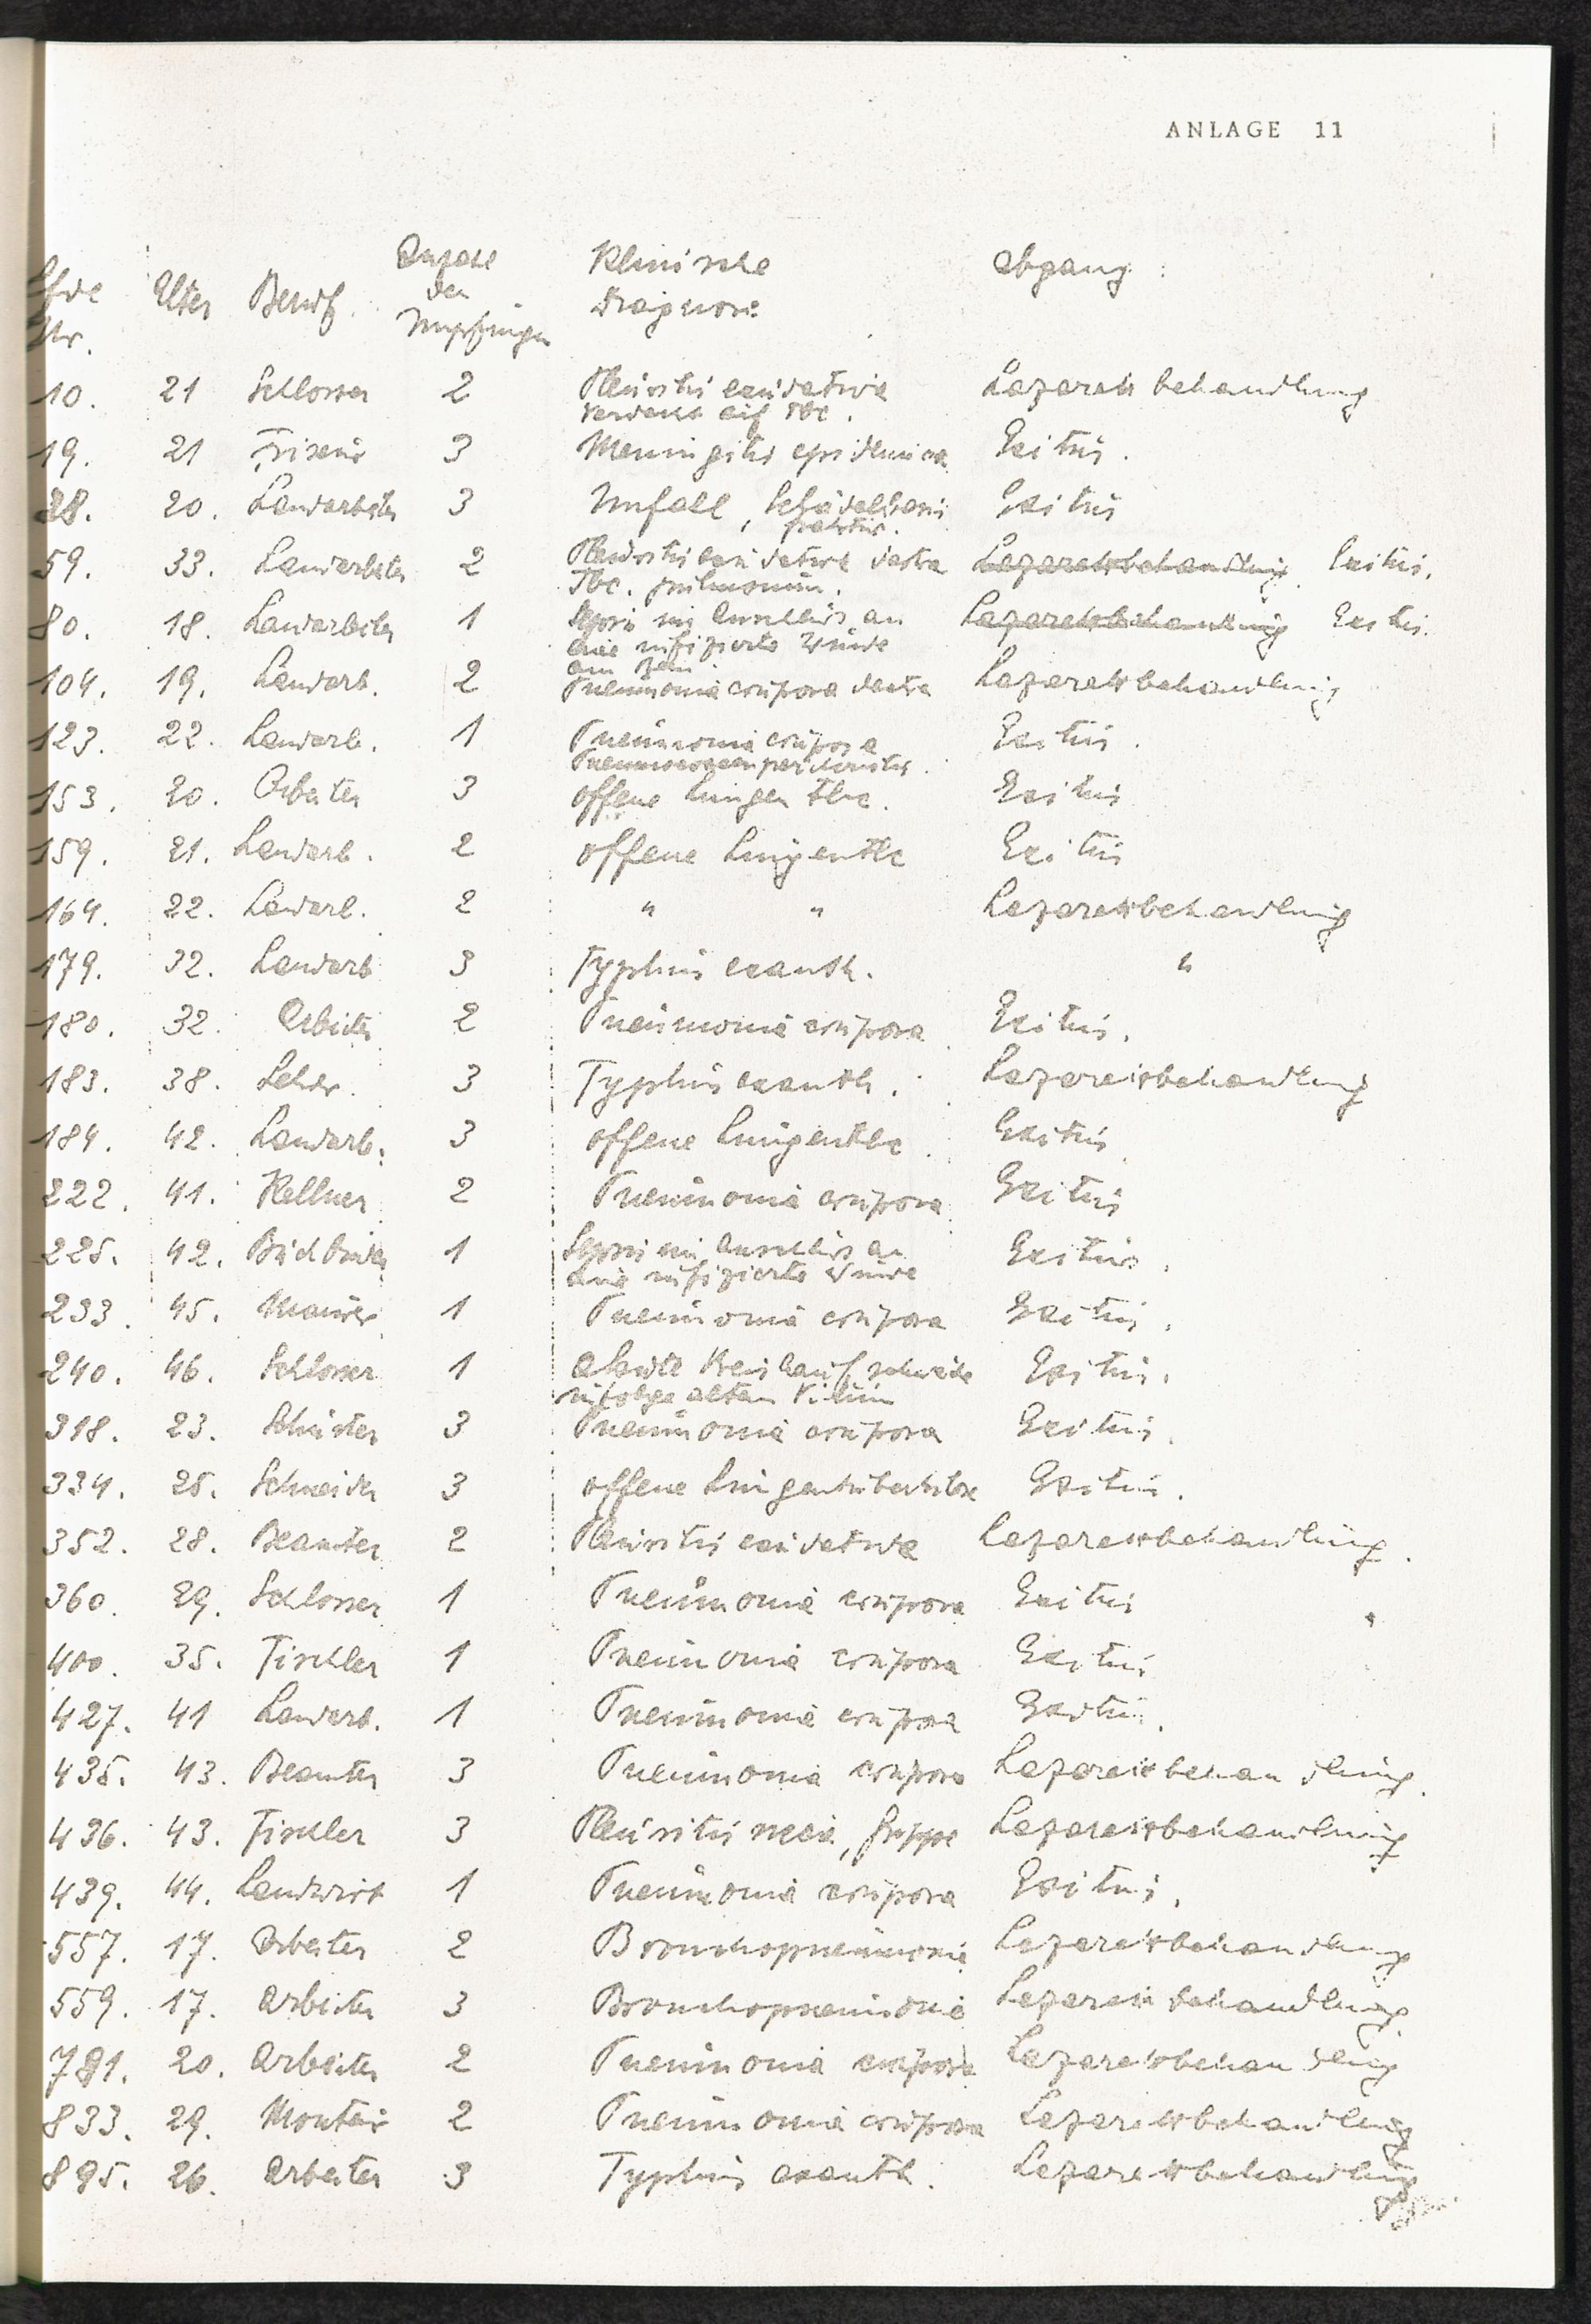 ANLAGE 11
Lfde Nr. Alter Beruf. Anzahl der Impfungen Klinische Diagnose Abgang:
10. 21 Schlosser 2 Pleuritis exudativa Lazarettbehandlung
Verdacht auf Tbc.
19. 21 Friseur 3 Meningitis epidemica Exitus.
28. 20. Landarbeiter 3 Unfall, Schädelbasis Exitus
fraktur.
59. 33. Landarbeiter 2 Pleuritis exudativa dextra Lazarettbehandlung Exitus.
Tbc. pulmonum.
80. 18. Landarbeiter 1 Sepsis im Anschluss an Lazarettbehandlung Exitus.
eine infizierte Wunde
am Bein
104. 19. Landarb. 2 Pneumonia crouposa dextra Lazarettbehandlung
123. 22. Landarb. 1 Pneumonia crouposa Exitus.
Pneumococcenperitonitis.
153. 20. Arbeiter 3 offene Lungen tbc. Exitus
159. 21. Landarb. 2 offene Lungentbc Exitus
164. 22. Landarb. 2 " " Lazarettbehandlung
179. 32. Landarb 3 Typhus exanth. "
180. 32. Arbeiter 2 Pneumonia crouposa Exitus.
183. 38. Lehrer. 3 Typhus exanth. Lazarettbehandlung
184. 42. Landarb. 3 offene Lungentbc. Exitus
222. 41. Kellner 2 Pneumonia crouposa Exitus
225. 42. Buchbinder 1 Sepsis im Anschluss an Exitus.
eine infizierte Wunde
233. 45. Maurer 1 Pneumonia crouposa Exitus.
240. 46. Schlosser 1 akute Kreislaufschwäche Exitus.
infolge alten Vitium
318. 23. Schuster 3 Pneumonia crouposa Exitus.
334. 25. Schneider 3 offene Lungentuberkulose Exitus.
352. 28. Beamter 2 Pleuritis exudativa Lazarettbehandlung.
360. 29. Schlosser 1 Pneumonia crouposa Exitus
400. 35. Tischler 1 Pneumonia crouposa Exitus
427. 41 Landarb. 1 Pneumonia crouposa Exitus.
435. 43. Beamter 3 Pneumonia crouposa Lazarettbehandlung.
436. 43. Tischler 3 Pleuritis sicca, Grippe Lazarettbehandlung
439. 44. Landwirt 1 Pneumonia crouposa Exitus.
557. 17. Arbeiter 2 Bronchopneumonie Lazarettbehandlung
559. 17. Arbeiter 3 Bronchopneumonie Lazarettbehandlung
781. 20. Arbeiter 2 Pneumonia crouposa Lazarettbehandlung
833. 29. Monteur 2 Pneumonia crouposa Lazarettbehandlung
895. 26. Arbeiter 3 Typhus exanth. Lazarettbehandlung